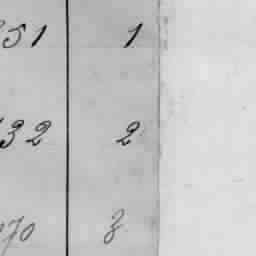 51 1
32 2
70 3